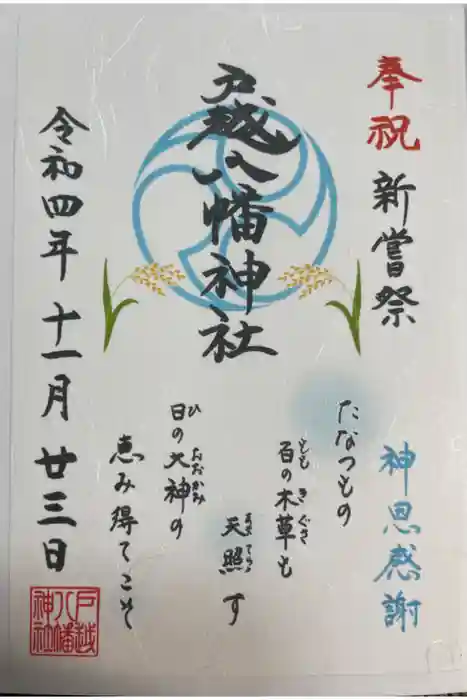 奉祝 新嘗祭
神恩感謝
戸越八幡神社
たなつもの
百の木草も
もも きぐさ
天照す
あまてら
日の大神の
ひ おおかみ
恵み得てこそ
令和四年 十一月 廿三日
戸越
八幡
神社